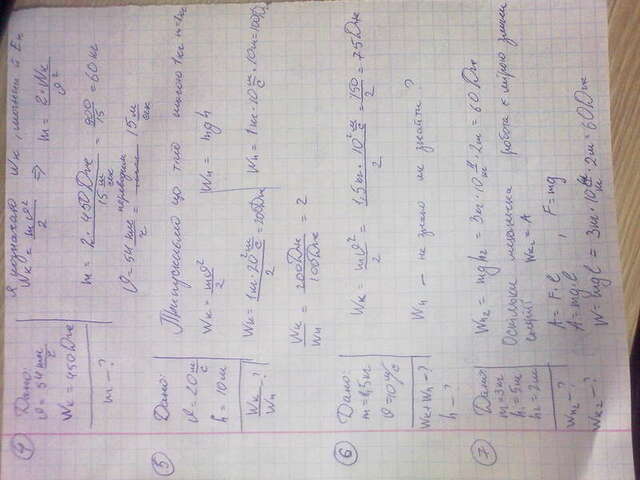 ④ Дано:
υ = 54 км/г
Wк = 450 Дж
m - ?
я позначаю Wк, значний й Eк
Wк = mυ²/2 ⇒ m = 2·Wк/υ²
m = 2·450 Дж / 15 м/сек = 900/15 = 60 кг
υ = 54 км/г = переводим = 15 м/сек
⑤ Дано:
υ = 20 м/с
h = 10 м
Wк/Wп - ?
Припускаємо що тіло масою 1 кг m=1кг
Wк = mυ²/2
Wп = mgh
Wк = 1кг·20² м/с / 2 = 200 Дж
Wп = 1кг·10 м/с·10м = 100 Дж
Wк/Wп = 200 Дж/100 Дж = 2
⑥ Дано:
m = 1,5 кг
υ = 10 м/с
Wк, Wп - ?
h - ?
Wк = mυ²/2 = 1,5кг·10² м/с / 2 = 150/2 = 75 Дж
Wп - не знаю як знайти?
⑦ Дано
m = 3кг
h = 2м
h₂ = 2м
Wп₂ - ?
Wк₂ - ?
Wп₂ = mgh₂ = 3кг·10 н/кг·2м = 60 Дж
Оскільки механічна робота є мірою зміни
енергії Wк₂ = A
A = F·l , F = mg
A = mgl
W = mgl = 3кг·10 н/кг·2м = 60 Дж